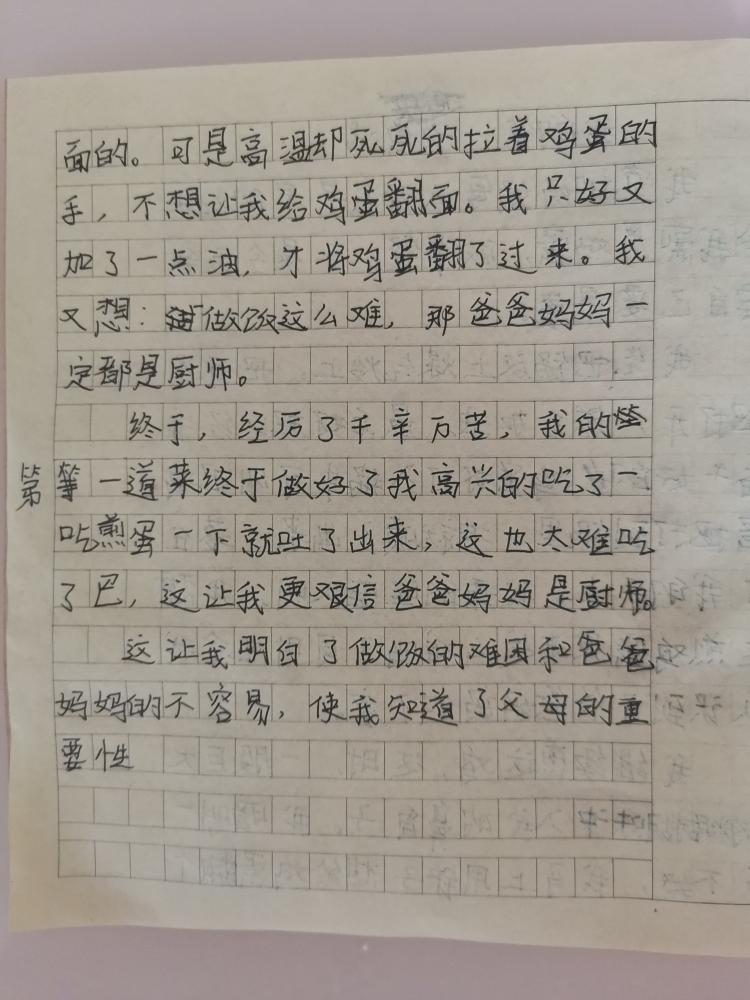 面的。可是高温却死死的拉着鸡蛋的
手，不想让我给鸡蛋翻面。我只好又
加了一点油，才将鸡蛋翻了过来。我
又想：做饭这么难，那爸爸妈妈一
定都是厨师。
终于，经历了千辛万苦，我的
第一道菜终于做好了我高兴的吃了一
吃煎蛋一下就吐了出来，这也太难吃
了巴，这让我更艰信爸爸妈妈是厨师。
这让我明白了做饭的难困和爸爸
妈妈的不容易，使我知道了父母的重
要性